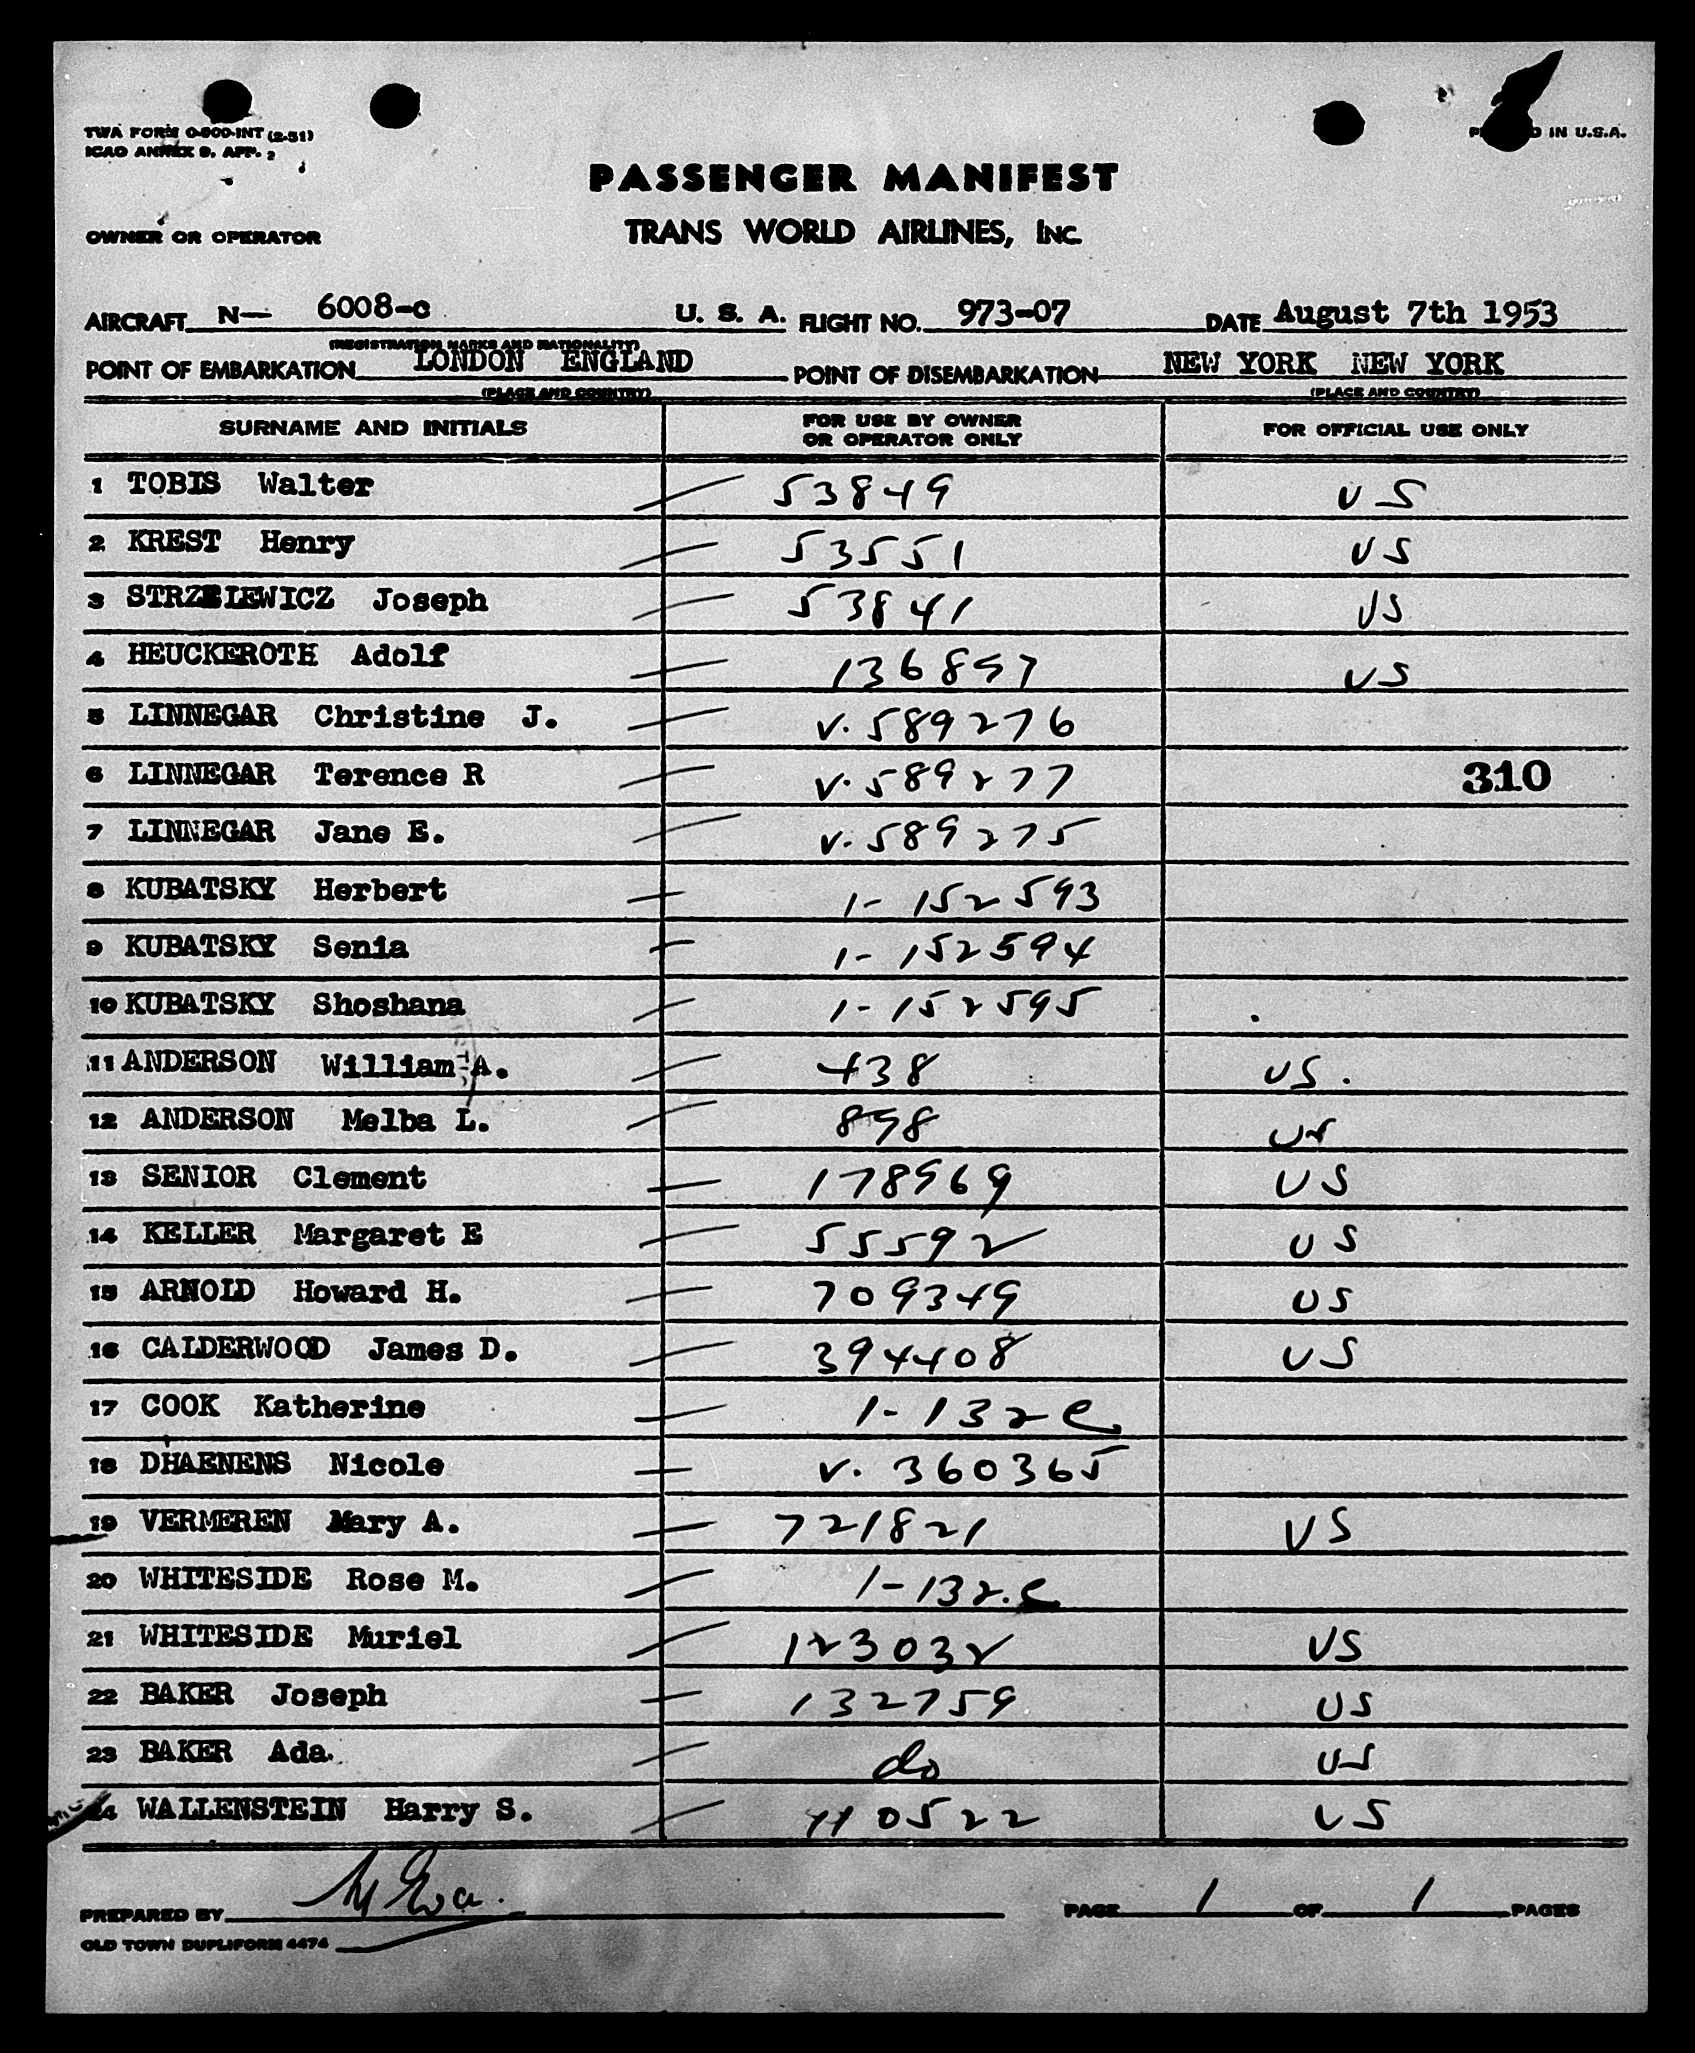 TWA FORM O-800-INT (2-51)
ICAO ANNEX 9, APP. 2
IN U.S.A.
PASSENGER MANIFEST
OWNER OR OPERATOR TRANS WORLD AIRLINES, INC.
AIRCRAFT N— 6008-c U. S. A. FLIGHT NO. 973-07 DATE August 7th 1953
(REGISTRATION MARKS AND NATIONALITY)
POINT OF EMBARKATION LONDON ENGLAND POINT OF DISEMBARKATION NEW YORK NEW YORK
(PLACE AND COUNTRY) (PLACE AND COUNTRY)
SURNAME AND INITIALS FOR USE BY OWNER OR OPERATOR ONLY FOR OFFICIAL USE ONLY
1 TOBIS Walter 53849 US
2 KREST Henry 53551 US
3 STRZELEWICZ Joseph 53841 US
4 HEUCKEROTH Adolf 136897 US
5 LINNEGAR Christine J. V. 589276
6 LINNEGAR Terence R V. 589277 310
7 LINNEGAR Jane E. V. 589275
8 KUBATSKY Herbert 1- 152593
9 KUBATSKY Senia 1- 152594
10 KUBATSKY Shoshana 1- 152595
11 ANDERSON William A. 438 US.
12 ANDERSON Melba L. 898 US
13 SENIOR Clement 178969 US
14 KELLER Margaret E 55592 US
15 ARNOLD Howard H. 709349 US
16 CALDERWOOD James D. 394408 US
17 COOK Katherine 1- 132 e
18 DHAENENS Nicole V. 360365
19 VERMEREN Mary A. 721821 US
20 WHITESIDE Rose M. 1-132.e
21 WHITESIDE Muriel 123032 US
22 BAKER Joseph 132759 US
23 BAKER Ada. do US
24 WALLENSTEIN Harry S. 110522 US
PREPARED BY PAGE 1 OF 1 PAGES
OLD TOWN DUPLIFORM 4474